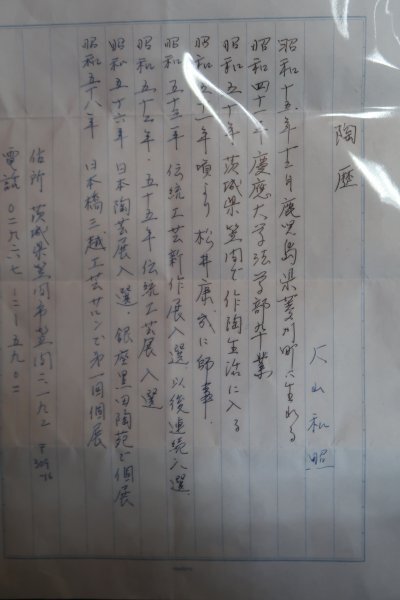 陶歴
山和照
昭和十五年十二月鹿児島県菱刈町に生れる
昭和四十二年 慶應大学法学部卒業
昭和五十年 茨城県笠間で作陶生活に入る
昭和五十一年頃より 松井康成に師事.
昭和五十三年 伝統工芸新作展入選 以後連続入選
昭和五十三年・五十五年 伝統工芸展入選
昭和五十六年 日本陶芸展入選. 銀座黒田陶苑で個展
昭和五十八年 日本橋三越工芸サロンで第一回個展
住所 茨城県笠間市笠間二一九二 〒309-16
電話 〇二九六七-二-五九〇二